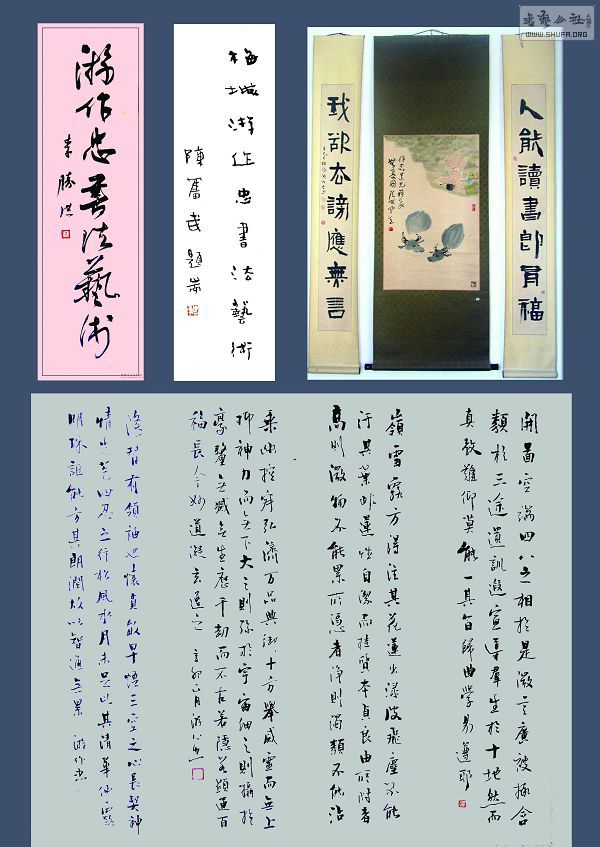 書藝公社
WWW.SHUFA.ORG
游作忠書法藝術
李勝洪
梅城游作忠書法藝術
陳奮武題耑
人能讀書即有福
我欲謗應無言
開圖空端四八之相於是微言廣被拯含
類於三途遺訓遐宣導群生於十地然而
真教難仰莫能一其旨歸曲學易遵邪
嶺雪露方得泫其花蓮出淥波飛塵不能
汙其葉非蓮性自潔而桂質本貞良由所附者
高則微物不能累所憑者淨則濁類不能沾
乘幽控寂弘濟万品典御十方舉威靈而無上
抑神力而無下大之則彌於宇宙細之則攝於
豪釐無滅無生歷千劫而不古若隱若顯運百
福長今妙道凝玄遵之 辛卯正月游作忠
有領袖也懷貞敏早悟三空之心長契神
情先苞四忍之行松風水月未足比其清華仙露
明珠詎能方其朗潤故以智通無累 游作忠